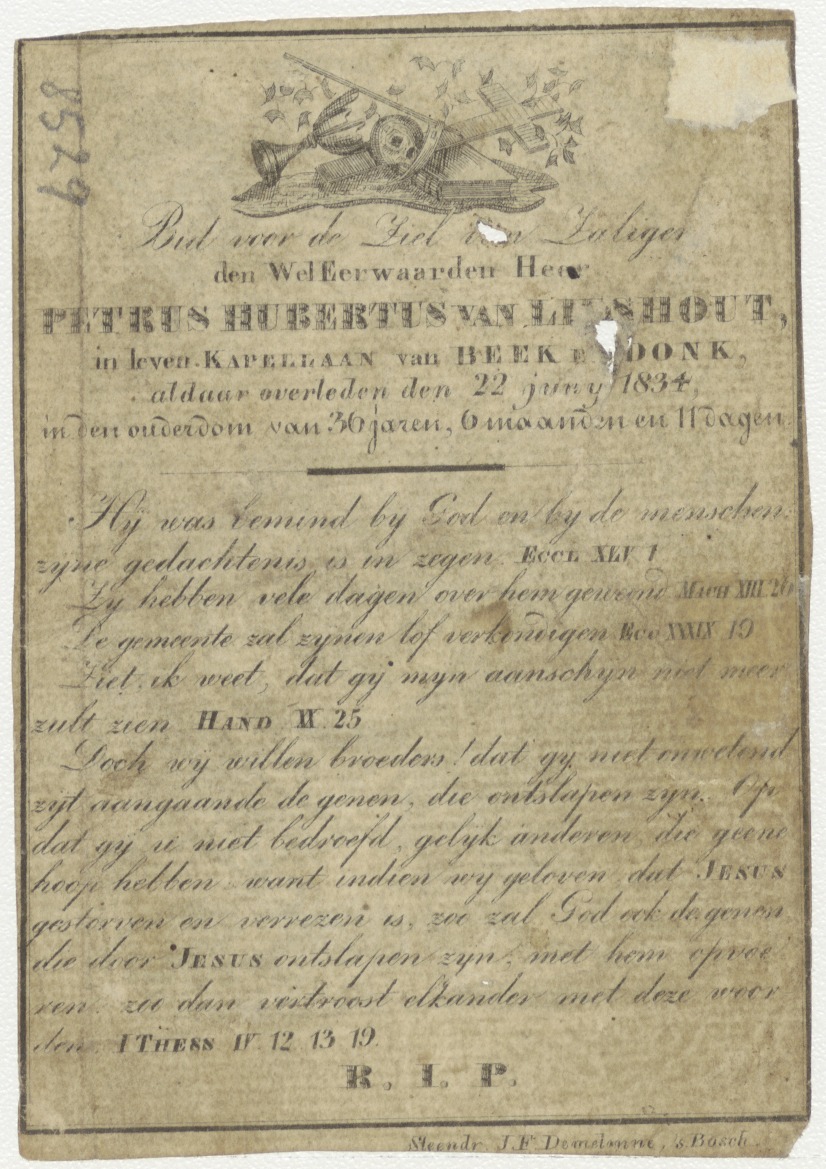 8529
Bid voor de Ziel van Zaliger
den WelEerwaarden Heer
PETRUS HUBERTUS VAN LIESHOUT,
in leven KAPELLAAN van BEEK EN DONK,
aldaar overleden den 22 juny 1834,
in den ouderdom van 36 jaren, 6 maanden en 11 dagen.
Hij was bemind by God en by de menschen:
zyne gedachtenis is in zegen. ECCL XLV 1
Zy hebben vele dagen over hem geweend MACH XIII 26
De gemeente zal zynen lof verkondigen ECC XXXIX 19
Ziet, ik weet, dat gy myn aanschyn niet meer
zult zien HAND XX 25
Doch wy willen broeders! dat gy niet onwetend
zyt aangaande de genen, die ontslapen zyn. Op
dat gy u niet bedroefd, gelyk anderen die geene
hoop hebben want indien wy geloven dat JESUS
gestorven en verrezen is, zoo zal God ook de genen
die door JESUS ontslapen zyn, met hem opvoe
ren. zoo dan vertroost elkander met deze woor
den. I THESS IV. 12 13 19.
R. I. P.
Steendr. J. F. Demelinne, 's Bosch.